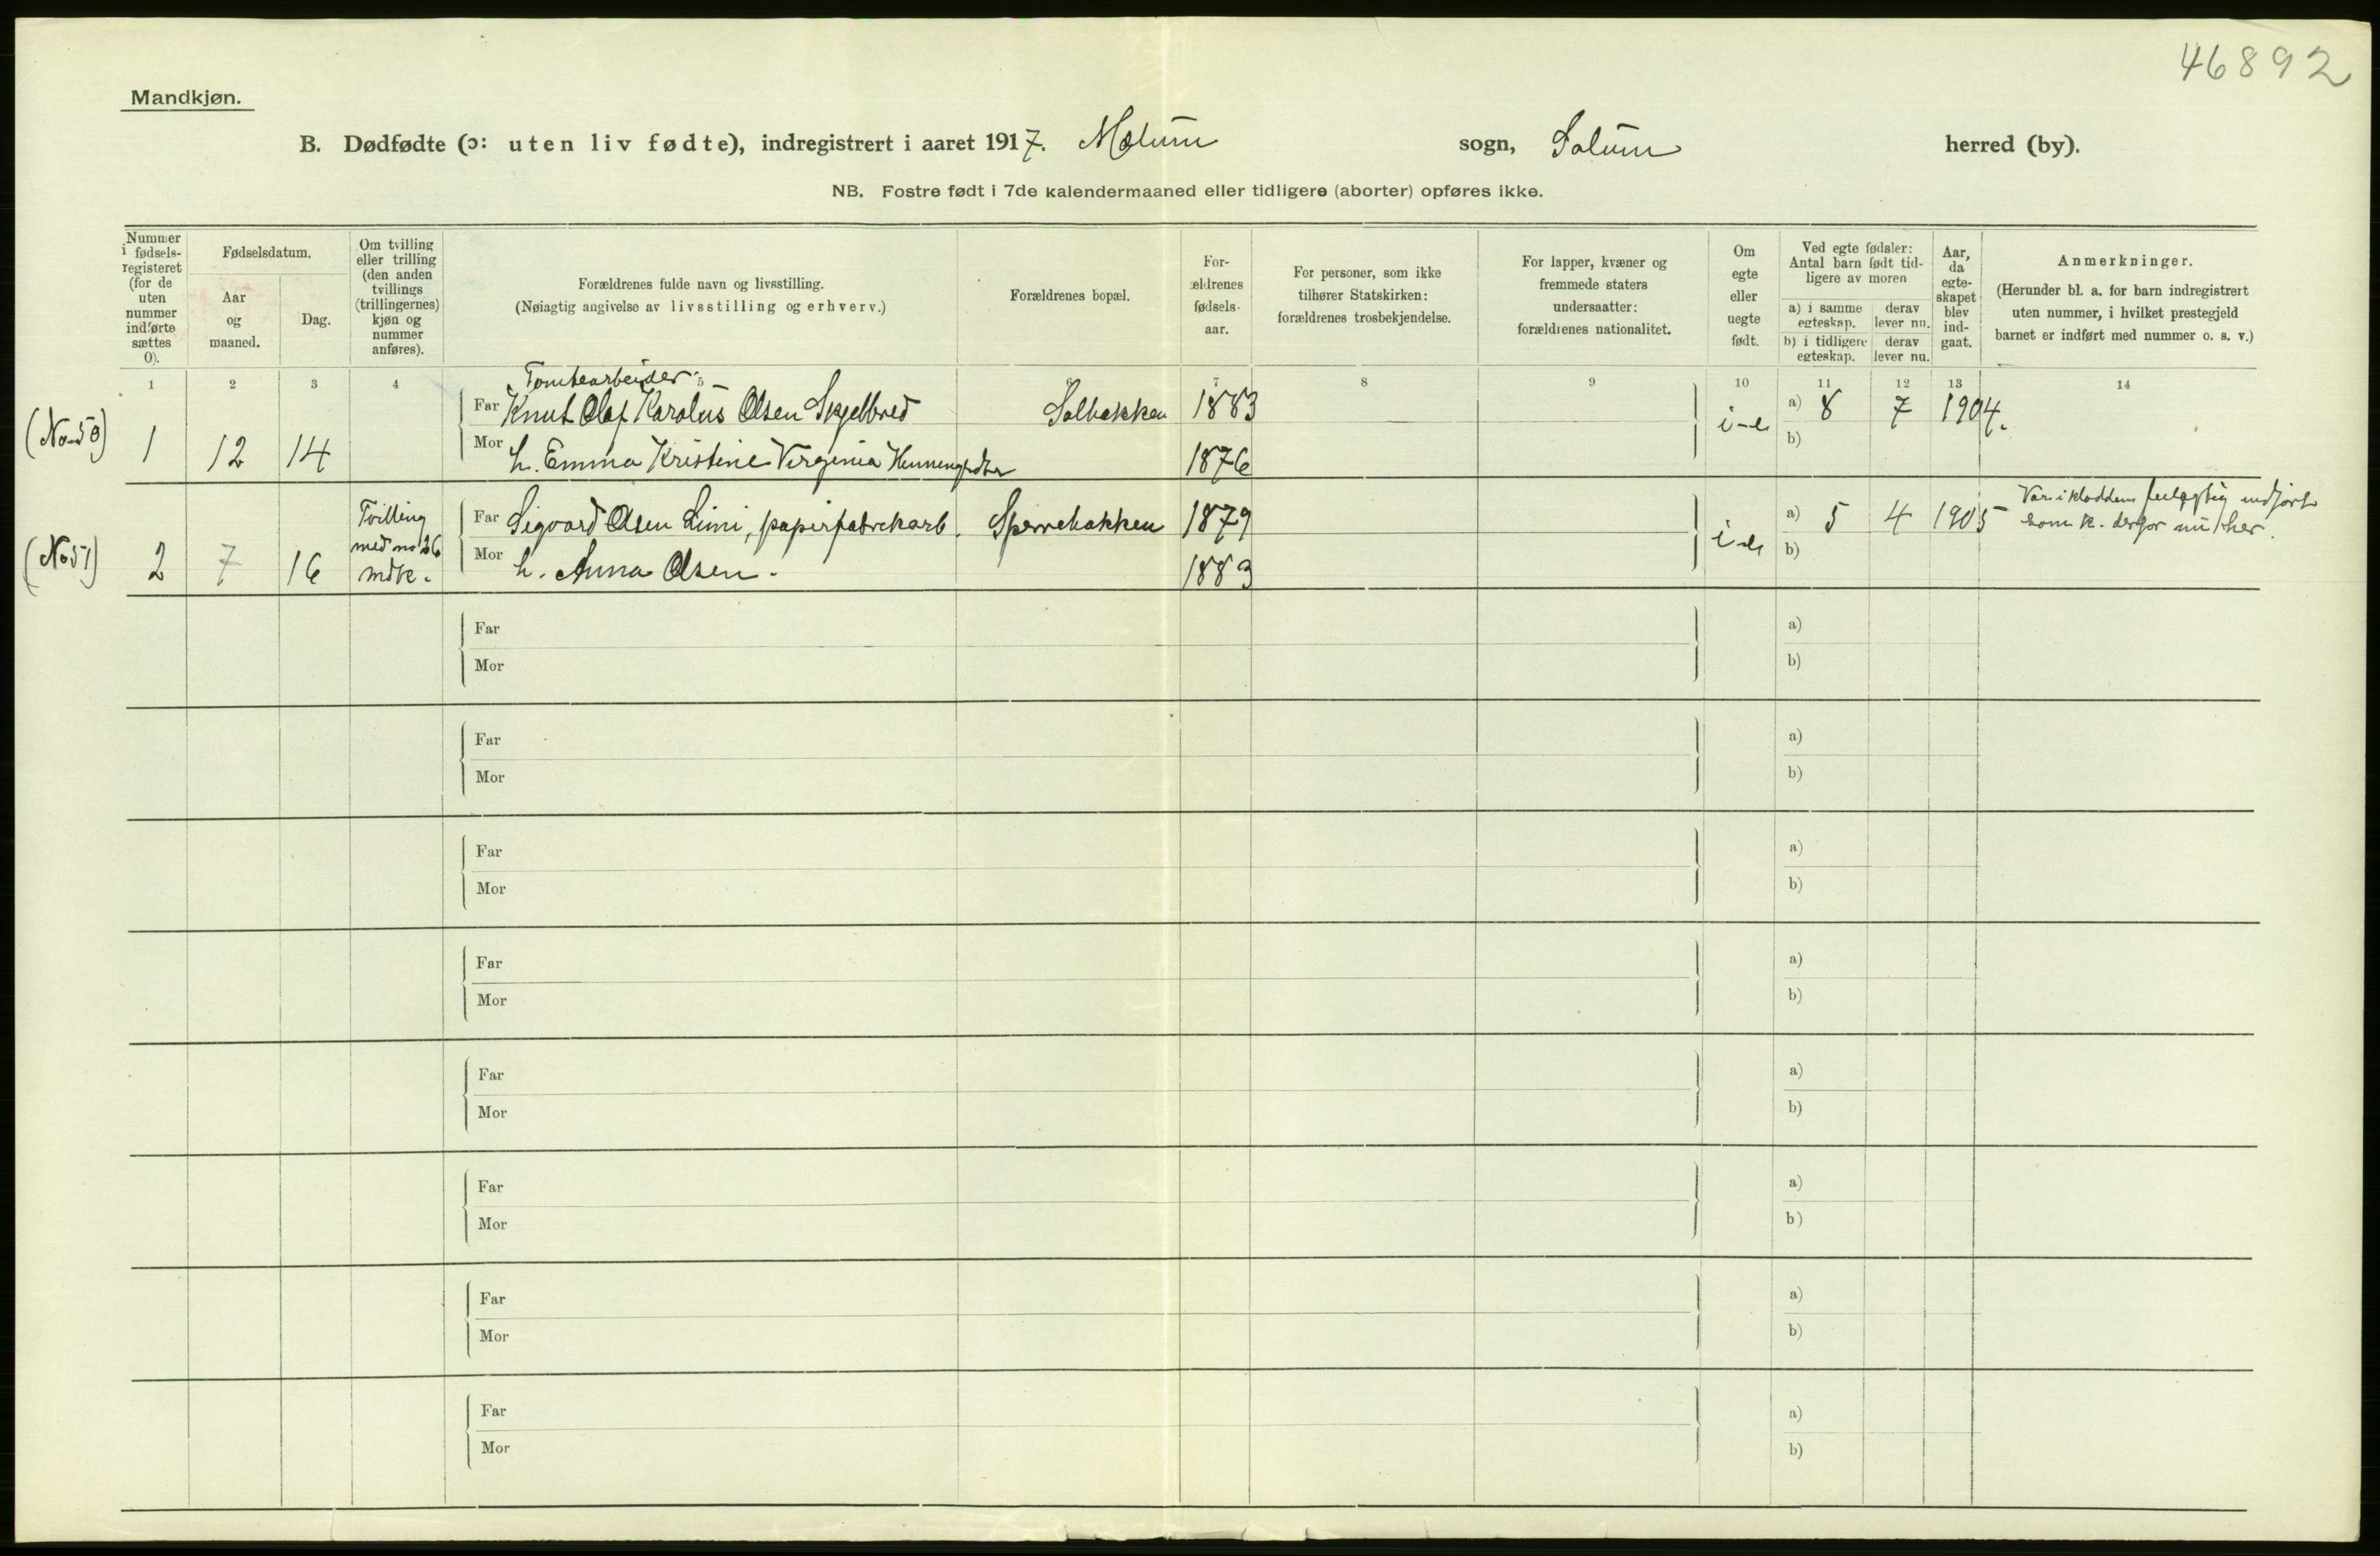 46892
Mandkjøn.
B. Dødfødte (ɔ: uten liv fødte), indregistrert i aaret 1917. Mælum sogn, Solum herred (by).
NB. Fostre født i 7de kalendermaaned eller tidligere (aborter) opføres ikke.
Nummer i fødsels-registeret (for de uten nummer indførte sættes 0).
Fødselsdatum.
Aar og maaned.
Dag.
Om tvilling eller trilling (den anden tvillings (trillingernes) kjøn og nummer anføres).
Forældrenes fulde navn og livsstilling.
(Nøiagtig angivelse av livsstilling og erhverv.)
Forældrenes bopæl.
For-ældrenes fødsels-aar.
For personer, som ikke tilhører Statskirken: forældrenes trosbekjendelse.
For lapper, kvæner og fremmede staters undersaatter: forældrenes nationalitet.
Om egte eller uegte født.
Ved egte fødsler: Antal barn født tid-ligere av moren
a) i samme egteskap. derav lever nu.
b) i tidligere egteskap. derav lever nu.
Aar, da egte-skapet blev ind-gaat.
Anmerkninger.
(Herunder bl. a. for barn indregistrert uten nummer, i hvilket prestegjeld barnet er indført med nummer o. s. v.)
1 2 3 4 5 6 7 8 9 10 11 12 13 14
Tomtearbeider
(No 50) 1 12 14 Far Knut Olaf Karolus Olsen Skjelbred Solbakken 1883 i-e a) 8 7 1904.
Mor h. Emma Kristine Virginia 1876 b)
(No 51) 2 7 16 Tvilling med no 26 mdk. Far Sigvard Olsen Limi, papirfabrikarb. Sperrebakken 1879 i-e a) 5 4 1905 Var i kladden feilagtig indført som k. derfor nu her.
Mor h. Anna Olsen. 1883 b)
Far a)
Mor b)
Far a)
Mor b)
Far a)
Mor b)
Far a)
Mor b)
Far a)
Mor b)
Far a)
Mor b)
Far a)
Mor b)
Far a)
Mor b)